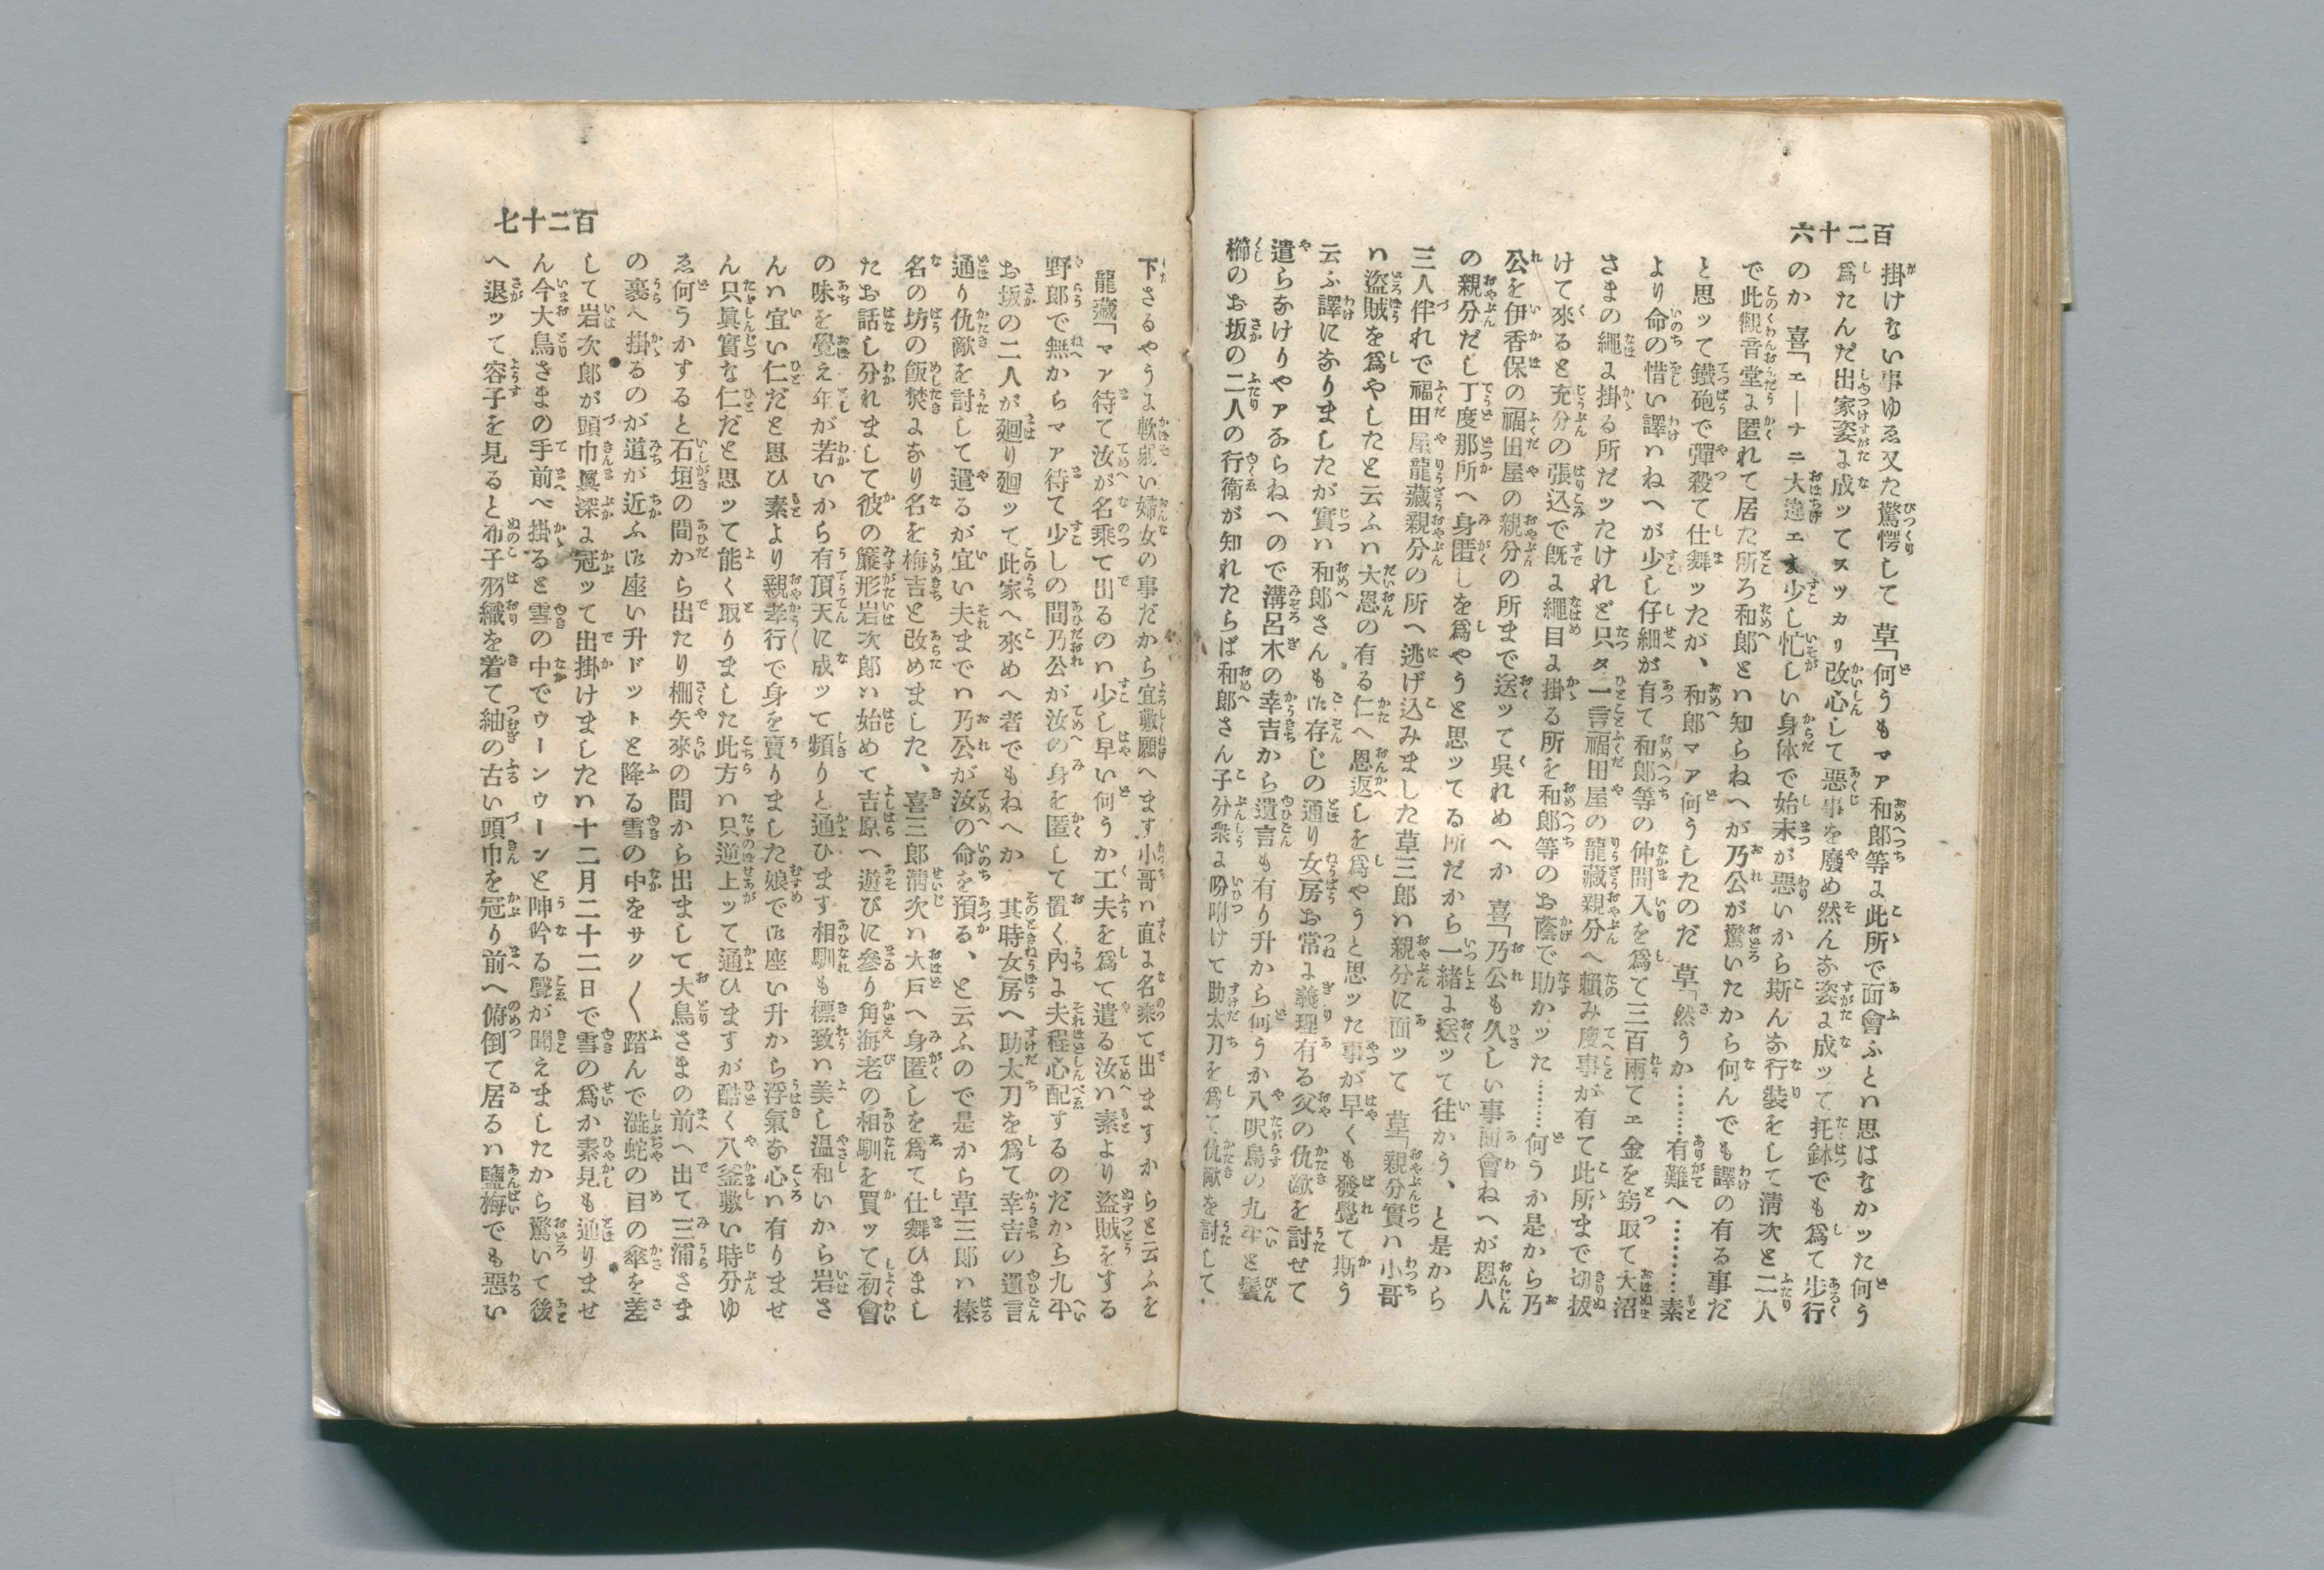 百二十六
掛けない事ゆゑ又た驚愕して 草「何うもマア和郎等よ此所で面會ふとハ思はなかッた何う
爲たんだ出家姿よ成ッてスッカリ改心して惡事を廢め然んな姿よ成ッて托鉢でも爲て步行
のか 喜「エーナニ大違エよ少し忙しい身体で始末が惡いから斯んな行裝をして淸次と二人
で此觀音堂よ匿れて居た所ろ和郎とハ知らねへが乃公が驚いたから何んでも譯の有る事だ
と思ッて鐵砲で彈殺て仕舞ッたが、和郎マア何うしたのだ 草「然うか……有難へ………素
より命の惜い譯ハねへが少し仔細が有て和郎等の仲間入を爲て三百兩てエ金を窃取て大沼
さまの繩よ掛る所だッたけれど只タ一言福田屋の龍藏親分へ賴み度事が有て此所まで切拔
けて來ると充分の張込で既よ繩目よ掛る所を和郎等のお蔭で助かッた……何うか是から乃
公を伊香保の福田屋の親分の所まで送ッて吳れめへか 喜「乃公も久しい事面會ねへが恩人
の親分だし丁度那所へ身匿しを爲やうと思ッてる所だから一緖よ送ッて往かう、と是から
三人伴れで福田屋龍藏親分の所へ逃げ込みました草三郎ハ親分に面ッて 草「親分實ハ小哥
ハ盜賊を爲やしたと云ふハ大恩の有る仁へ恩返しを爲やうと思ッた事が早くも發覺て斯う
云ふ譯になりましたが實ハ和郎さんも御存じの通り女房お常よ義理有る父の仇敵を討せて
遣らなけりやアならねへので溝呂木の幸吉から遺言も有り升から何うか八咫烏の九平と鬢
櫛のお坂の二人の行衛が知れたらば和郎さん子分衆よ吩咐けて助太刀を爲て仇敵を討して
百二十七
下さるやうよ軟弱い婦女の事だから宜敷願へます小哥ハ直よ名乘て出ますからと云ふを
龍藏「マア待て汝が名乘て出るのハ少し早い何うか工夫を爲て遣る汝ハ素より盜賊をする
野郎で無からマア待て少しの間乃公が汝の身を匿して置く內よ夫程心配するのだから九平
お坂の二人が廻り廻ッて此家へ來めへ者でもねへか 其時女房へ助太刀を爲て幸吉の遺言
通り仇敵を討して遣るが宜い夫までハ乃公が汝の命を預る、と云ふので是から草三郎ハ榛
名の坊の飯焚よなり名を梅吉と改めました、喜三郎淸次ハ大戶へ身匿しを爲て仕舞ひまし
たお話し分れまして彼の簾形岩次郎ハ始めて吉原へ遊びに參り角海老の相馴を買ッて初會
の味を覺え年が若いから有頂天に成ッて頻りと通ひます相馴も標致ハ美し温和いから岩さ
んハ宜い仁だと思ひ素より親孝行で身を賣りました娘で御座い升から浮氣な心ハ有りませ
ん只眞實な仁だと思ッて能く取りました此方ハ只逆上ッて通ひますが酷く八釜敷い時分ゆ
ゑ何うかすると石垣の間から出たり柵矢來の間から出まして大鳥さまの前へ出て三浦さま
の裏へ掛るのが道が近ふ御座い升ドットと降る雪の中をサク〱踏んで澁蛇の目の傘を差
して岩次郎が頭巾眞深よ冠ッて出掛けましたハ十二月二十二日で雪の爲か素見も通りませ
ん今大鳥さまの手前ベ掛ると雪の中でウーンウーンと呻吟る聲が聞えましたから驚いて後
へ退ッて容子を見ると布子羽織を着て紬の古い頭巾を冠り前へ俯倒て居るハ鹽梅でも惡い